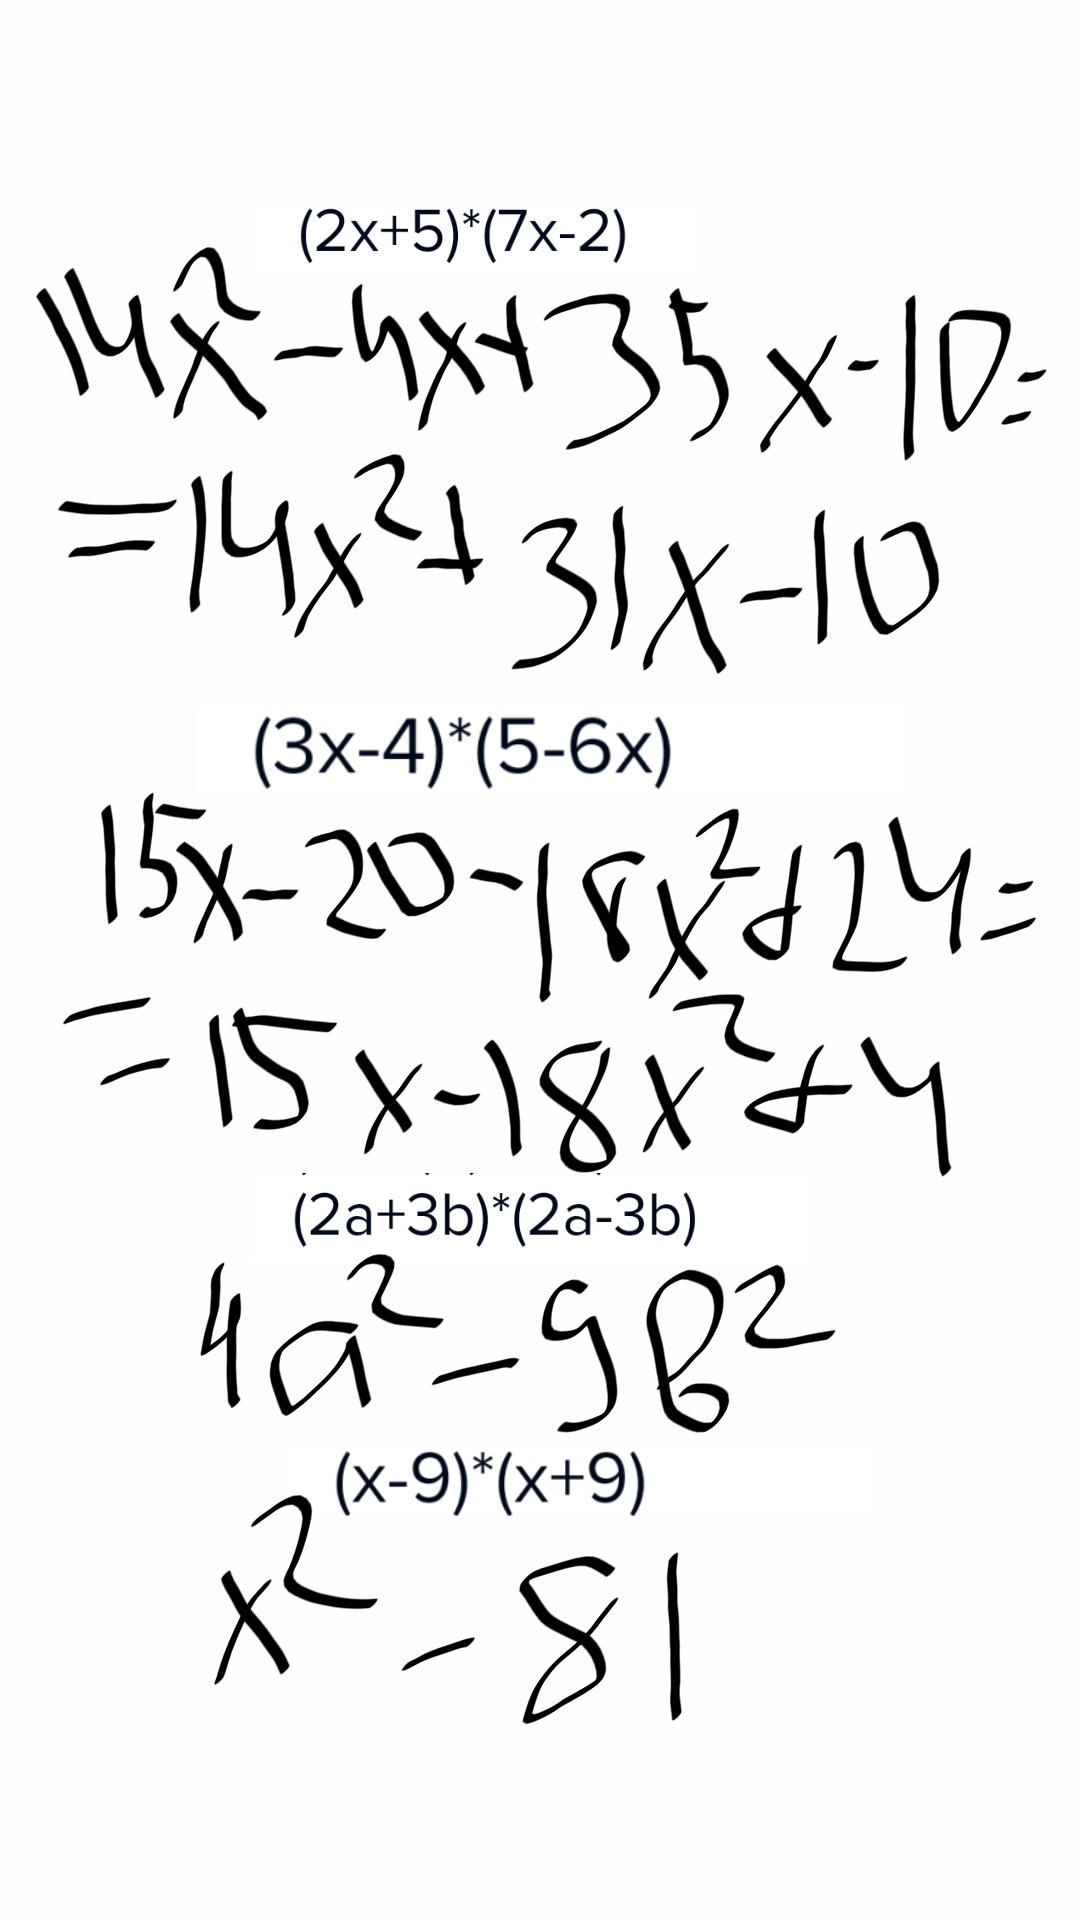 (2x+5)*(7x-2)
14x²-4x+35x-10=
=14x²+31x-10
(3x-4)*(5-6x)
15x-20-18x²+24=
=15x-18x²+4
(2a+3b)*(2a-3b)
4a²-9b²
(x-9)*(x+9)
x²-81